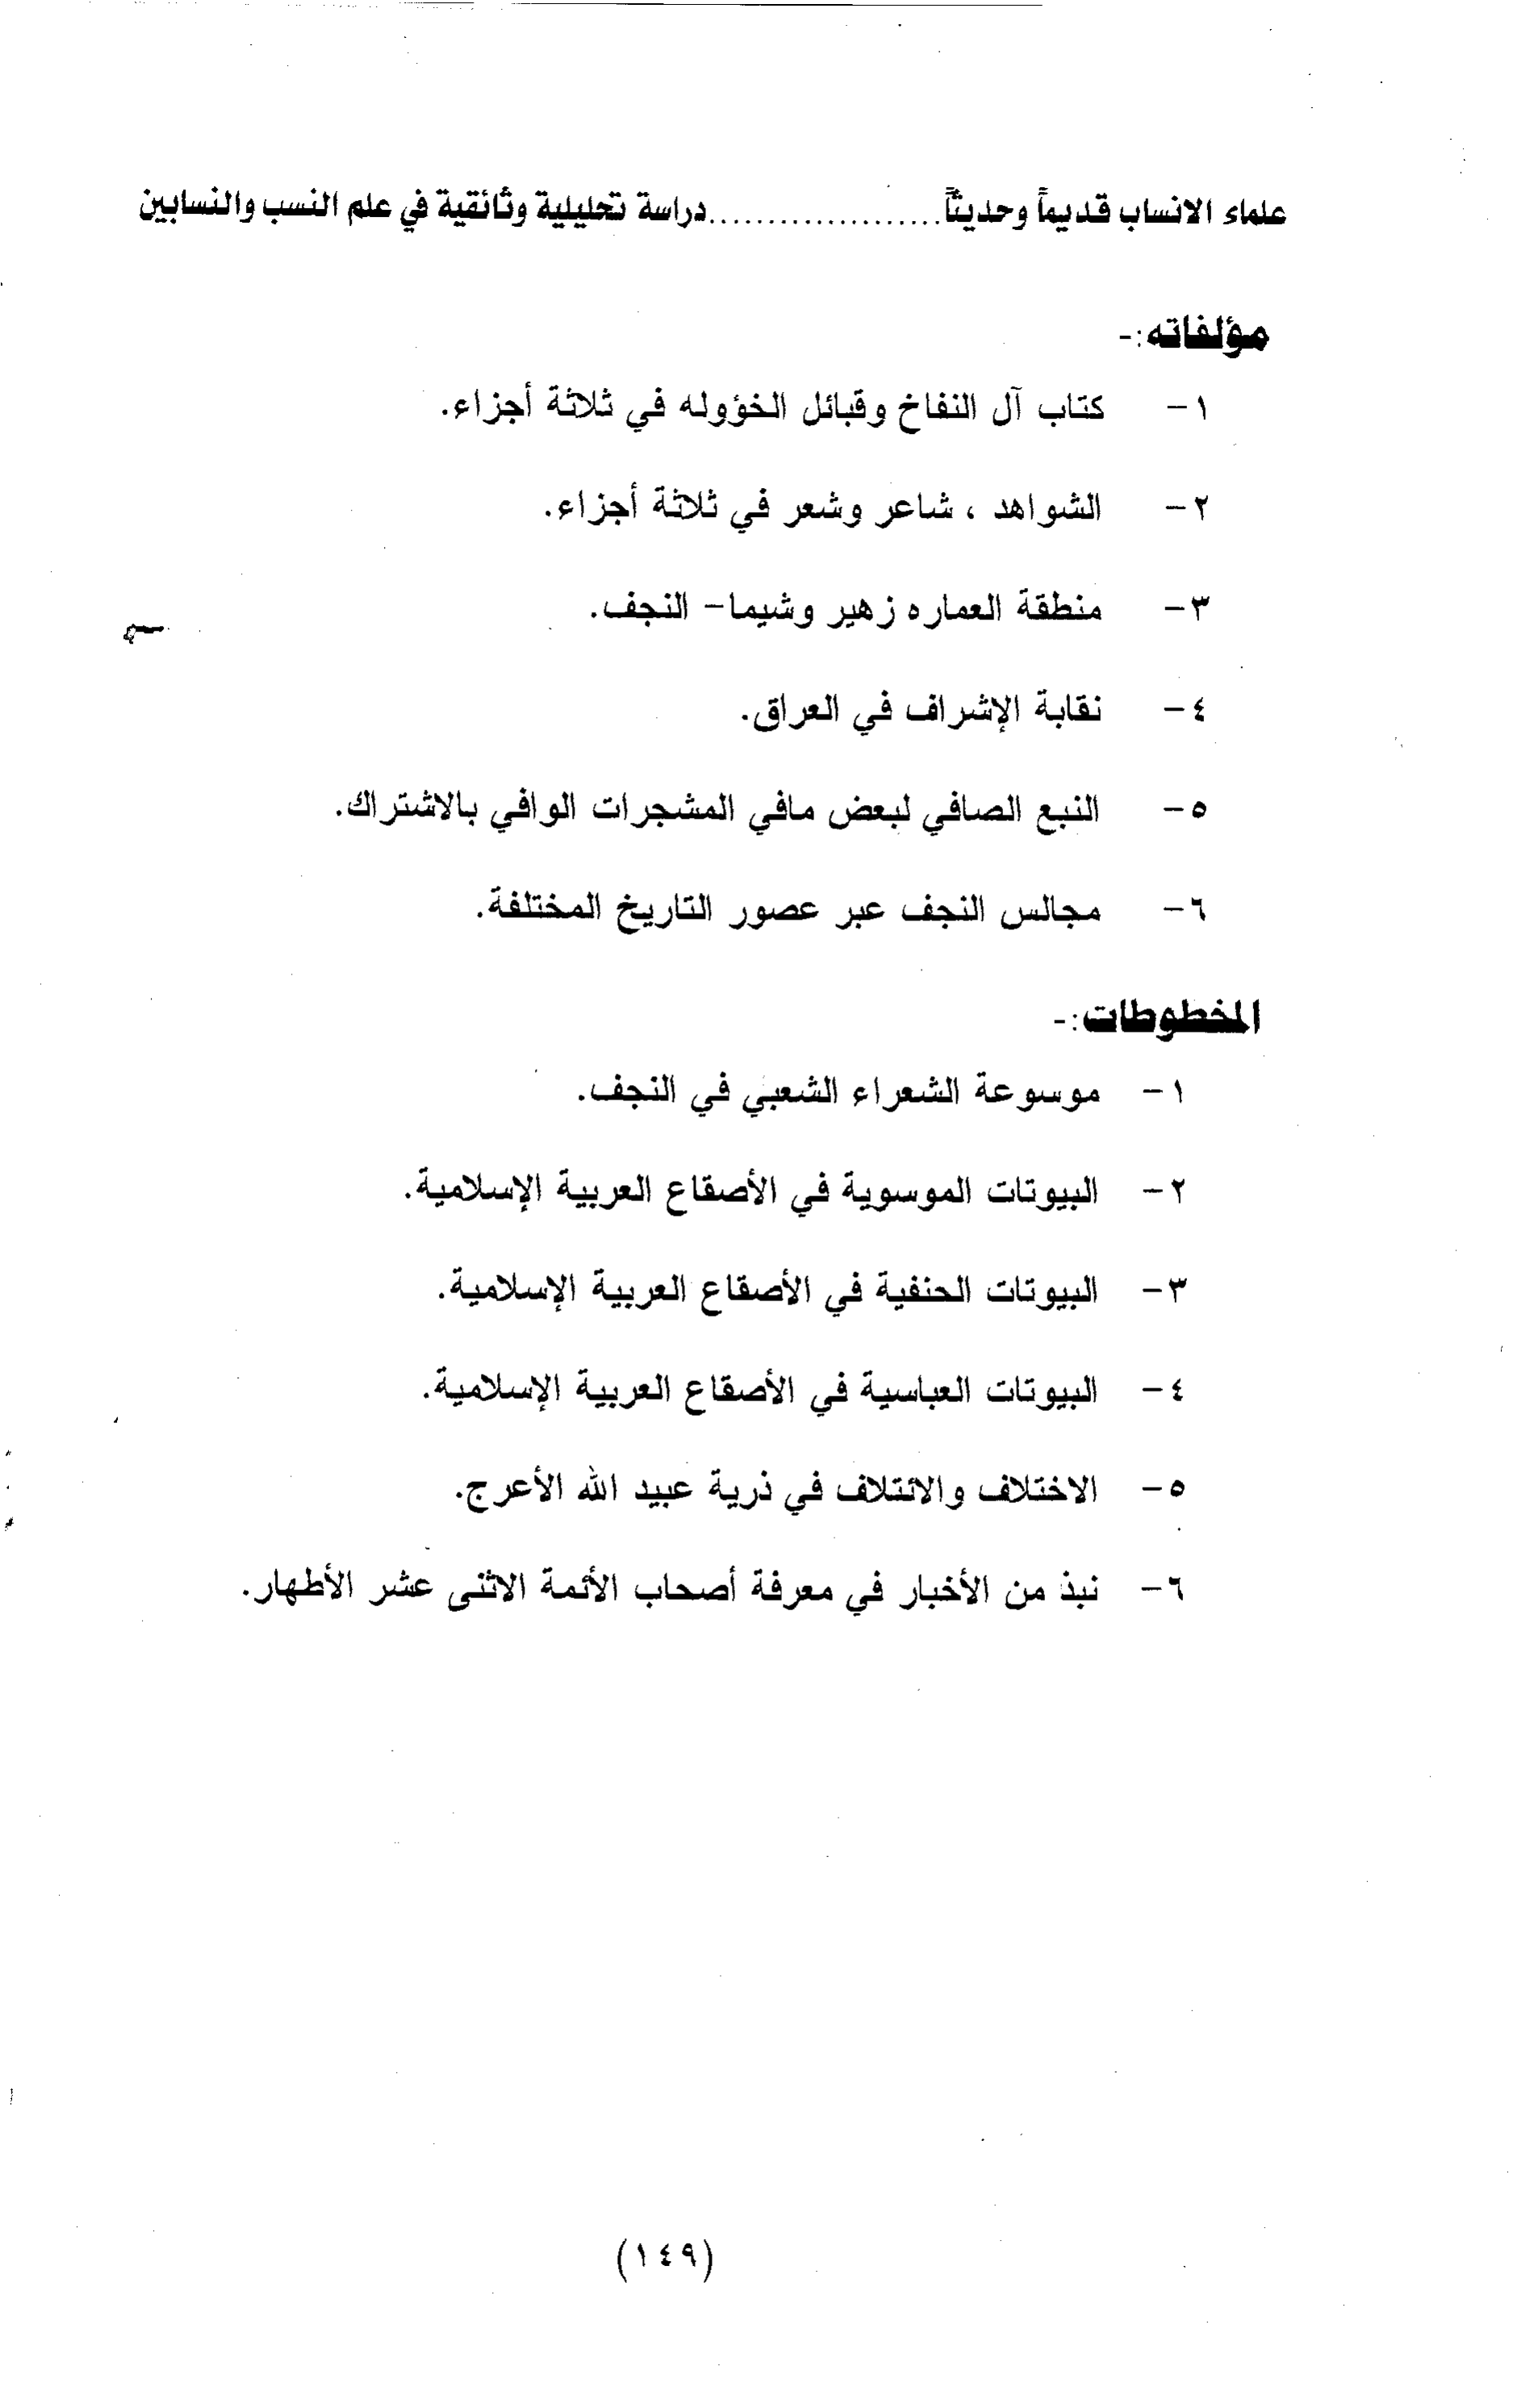 علماء الانساب قديماً وحديثاً....................دراسة تحليلية وثائقية في علم النسب والنسابين
مؤلفاته:-
١- كتاب آل النفاخ وقبائل الخؤوله في ثلاثة أجزاء.
٢- الشواهد ، شاعر وشعر في ثلاثة أجزاء.
٣- منطقة العماره زهير وشيما- النجف.
٤- نقابة الإشراف في العراق.
٥- النبع الصافي لبعض مافي المشجرات الوافي بالاشتراك.
٦- مجالس النجف عبر عصور التاريخ المختلفة.
المخطوطات:-
١- موسوعة الشعراء الشعبي في النجف.
٢- البيوتات الموسوية في الأصقاع العربية الإسلامية.
٣- البيوتات الحنفية في الأصقاع العربية الإسلامية.
٤- البيوتات العباسية في الأصقاع العربية الإسلامية.
٥- الاختلاف والائتلاف في ذرية عبيد الله الأعرج.
٦- نبذ من الأخبار في معرفة أصحاب الأئمة الاثنى عشر الأطهار.
(١٤٩)